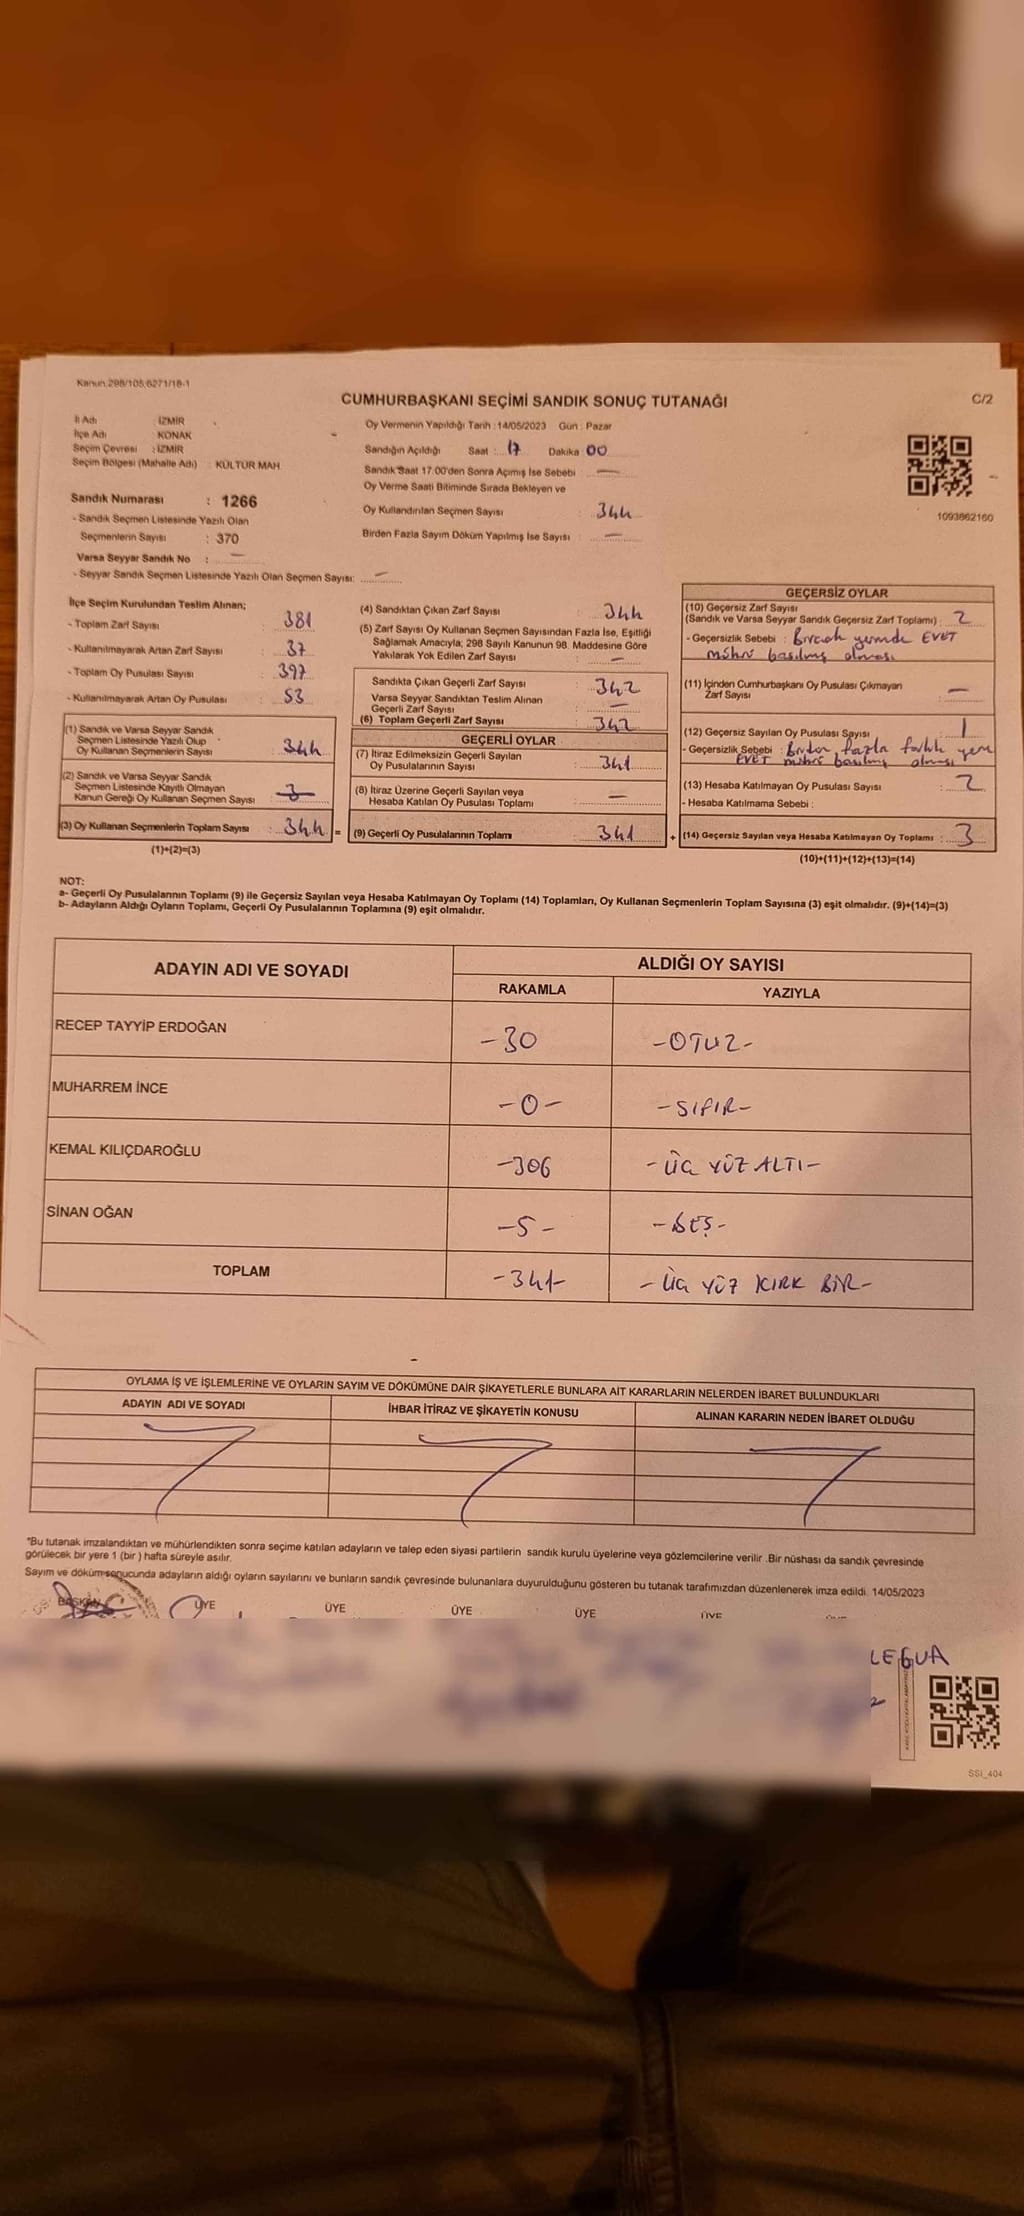 Kanun:298/105;6271/18-1
CUMHURBAŞKANI SEÇİMİ SANDIK SONUÇ TUTANAĞI
C/2
İl Adı : İZMİR
İlçe Adı : KONAK
Seçim Çevresi : İZMİR
Seçim Bölgesi (Mahalle Adı) : KÜLTÜR MAH.
Sandık Numarası : 1266
- Sandık Seçmen Listesinde Yazılı Olan
Seçmenlerin Sayısı : 370
Varsa Seyyar Sandık No : —
- Seyyar Sandık Seçmen Listesinde Yazılı Olan Seçmen Sayısı: —
Oy Vermenin Yapıldığı Tarih : 14/05/2023 Gün : Pazar
Sandığın Açıldığı Saat : 17 Dakika 00
Sandık Saat 17:00'den Sonra Açımış İse Sebebi —
Oy Verme Saati Bitiminde Sırada Bekleyen ve
Oy Kullandırılan Seçmen Sayısı : 344
Birden Fazla Sayım Döküm Yapılmış İse Sayısı : —
1093862160
İlçe Seçim Kurulundan Teslim Alınan;
- Toplam Zarf Sayısı : 381
- Kullanılmayarak Artan Zarf Sayısı : 37
- Toplam Oy Pusulası Sayısı : 397
- Kullanılmayarak Artan Oy Pusulası : 53
(1) Sandık ve Varsa Seyyar Sandık
Seçmen Listesinde Yazılı Olup
Oy Kullanan Seçmenlerin Sayısı : 344
(2) Sandık ve Varsa Seyyar Sandık
Seçmen Listesinde Kayıtlı Olmayan
Kanun Gereği Oy Kullanan Seçmen Sayısı : 3
(3) Oy Kullanan Seçmenlerin Toplam Sayısı : 344 =
(1)+(2)=(3)
(4) Sandıktan Çıkan Zarf Sayısı : 344
(5) Zarf Sayısı Oy Kullanan Seçmen Sayısından Fazla İse, Eşitliği
Sağlamak Amacıyla, 298 Sayılı Kanunun 98. Maddesine Göre
Yakılarak Yok Edilen Zarf Sayısı : —
Sandıkta Çıkan Geçerli Zarf Sayısı : 342
Varsa Seyyar Sandıktan Teslim Alınan
Geçerli Zarf Sayısı : —
(6) Toplam Geçerli Zarf Sayısı : 342
GEÇERLİ OYLAR
(7) İtiraz Edilmeksizin Geçerli Sayılan
Oy Pusulalarının Sayısı : 341
(8) İtiraz Üzerine Geçerli Sayılan veya
Hesaba Katılan Oy Pusulası Toplamı : —
(9) Geçerli Oy Pusulalarının Toplamı : 341 +
GEÇERSİZ OYLAR
(10) Geçersiz Zarf Sayısı
(Sandık ve Varsa Seyyar Sandık Geçersiz Zarf Toplamı) : 2
- Geçersizlik Sebebi : yerinde EVET
mührü basılmış olması
(11) İçinden Cumhurbaşkanı Oy Pusulası Çıkmayan
Zarf Sayısı : —
(12) Geçersiz Sayılan Oy Pusulası Sayısı : 1
- Geçersizlik Sebebi : Birden fazla farklı yere
EVET mührü basılmış olması
(13) Hesaba Katılmayan Oy Pusulası Sayısı : 2
- Hesaba Katılmama Sebebi :
(14) Geçersiz Sayılan veya Hesaba Katılmayan Oy Toplamı : 3
(10)+(11)+(12)+(13)=(14)
NOT:
a- Geçerli Oy Pusulalarının Toplamı (9) ile Geçersiz Sayılan veya Hesaba Katılmayan Oy Toplamı (14) Toplamları, Oy Kullanan Seçmenlerin Toplam Sayısına (3) eşit olmalıdır. (9)+(14)=(3)
b- Adayların Aldığı Oyların Toplamı, Geçerli Oy Pusulalarının Toplamına (9) eşit olmalıdır.
ADAYIN ADI VE SOYADI
ALDIĞI OY SAYISI
RAKAMLA YAZIYLA
RECEP TAYYİP ERDOĞAN -30 -OTUZ-
MUHARREM İNCE -0- -SIFIR-
KEMAL KILIÇDAROĞLU -306 -ÜÇ YÜZ ALTI-
SİNAN OĞAN -5- -BEŞ-
TOPLAM -341- -ÜÇ YÜZ KIRK BİR-
OYLAMA İŞ VE İŞLEMLERİNE VE OYLARIN SAYIM VE DÖKÜMÜNE DAİR ŞİKAYETLERLE BUNLARA AİT KARARLARIN NELERDEN İBARET BULUNDUKLARI
ADAYIN ADI VE SOYADI İHBAR İTİRAZ VE ŞİKAYETİN KONUSU ALINAN KARARIN NEDEN İBARET OLDUĞU
*Bu tutanak imzalandıktan ve mühürlendikten sonra seçime katılan adayların ve talep eden siyasi partilerin sandık kurulu üyelerine veya gözlemcilerine verilir .Bir nüshası da sandık çevresinde
görülecek bir yere 1 (bir ) hafta süreyle asılır.
Sayım ve döküm sonucunda adayların aldığı oyların sayılarını ve bunların sandık çevresinde bulunanlara duyurulduğunu gösteren bu tutanak tarafımızdan düzenlenerek imza edildi. 14/05/2023
BAŞKAN ÜYE ÜYE ÜYE ÜYE ÜYE
SSI_404